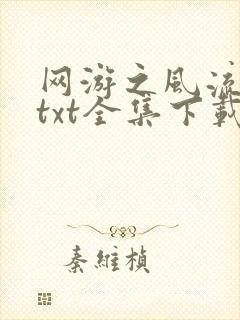 网游之风流
txt全集下载
秦维桢